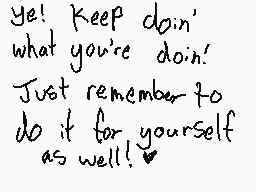 ye! Keep doin'
what you're doin!
Just remember to
do it for yourself
as well! ♥